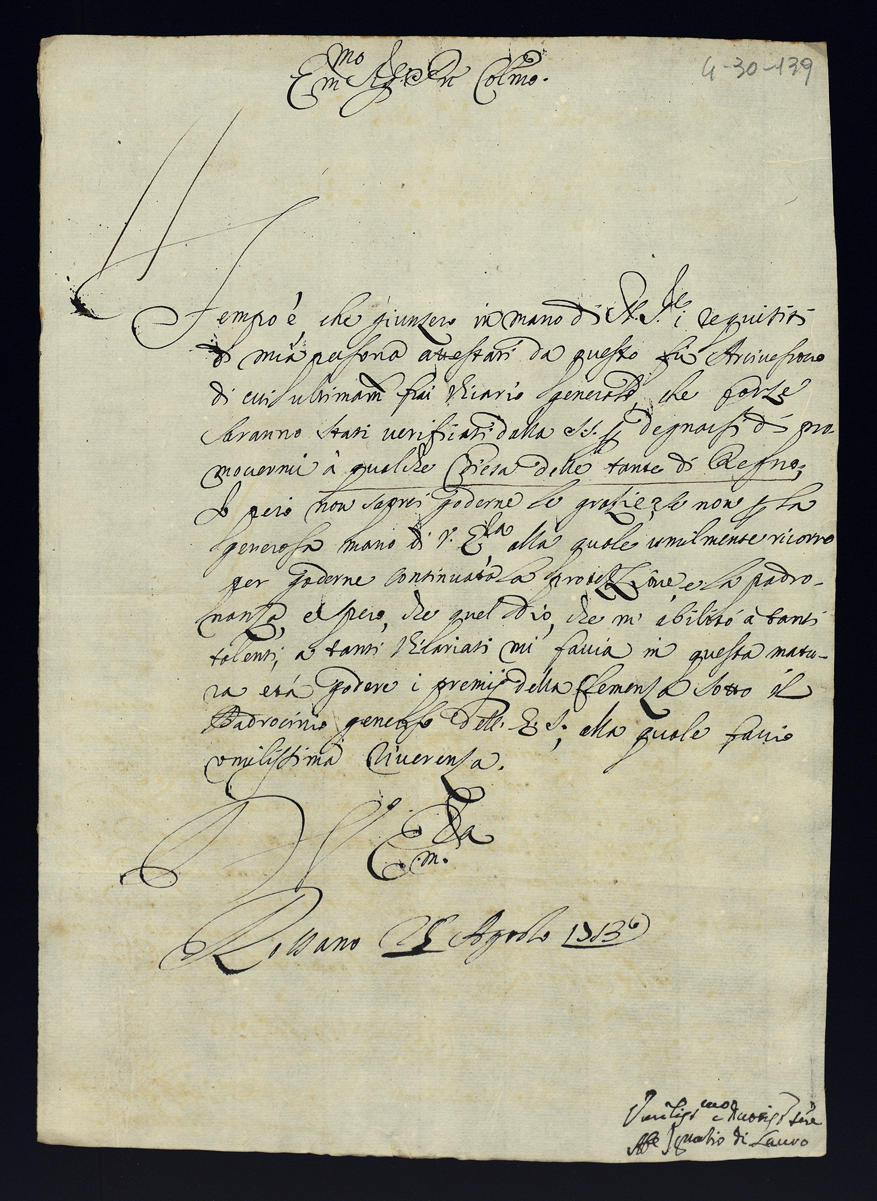 4-30-139
Em.mo Sig.re Pne Colmo.
Tempo è, che giunsero in mano di N. S.re i requisiti
di mia persona attestati da questo fù Arcivescovo
di cui ultimam. fui Vicario Generale, che forse
saranno stati verificati dalla S.S. p degnarsi di pro
movermi à qualche Chiesa delle tante di Regno;
Io però non saprei goderne le grazie, se non p la
generosa mano di V. E.za alla quale umilmente ricorro
per goderne continuata la protezzione, e la padro-
nanza, e spero, che quel Dio, che m' abilitò à tanti
talenti, a tanti Vicariati mi faccia in questa matu-
ra età godere i premij della Clemenza sotto il
Padrocinio generoso dell' E. S., alla quale faccio
umilissima riverenza.
D V. Em.za
Rossano 25 Agosto 1713
Umiliss.mo e Ser.re
Abb.e Ignatio di Lauro